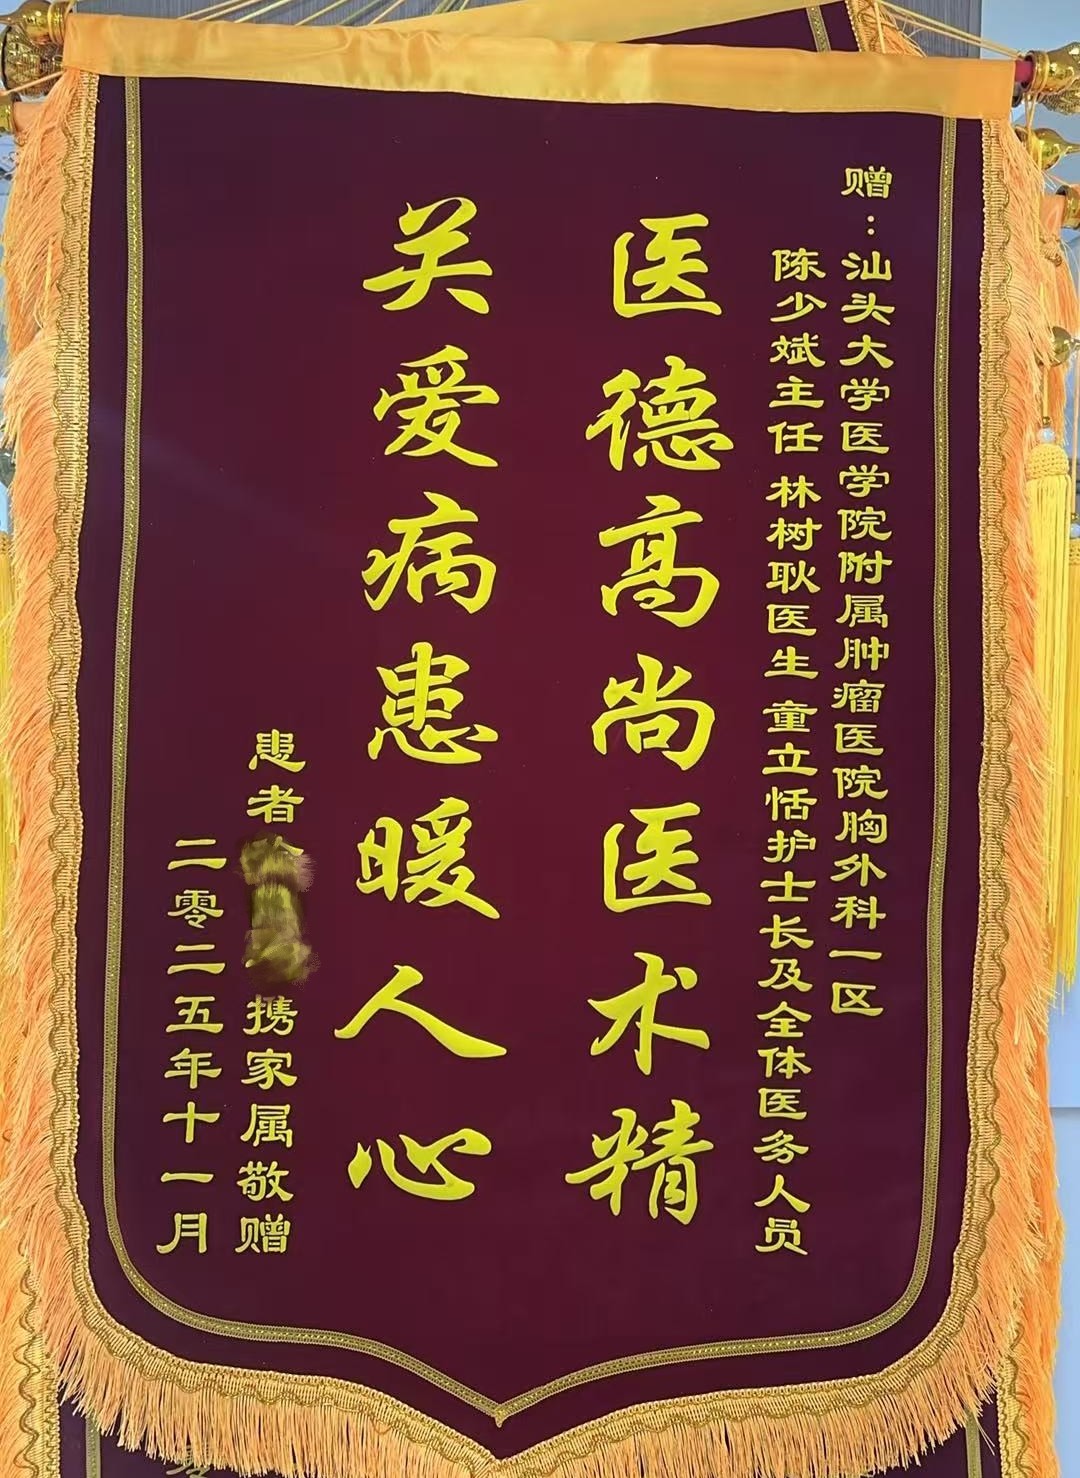 赠：汕头大学医学院附属肿瘤医院胸外科一区
陈少斌主任 林树耿医生 童立恬护士长及全体医务人员
医德高尚医术精
关爱病患暖人心
患者 携家属敬赠
二零二五年十一月